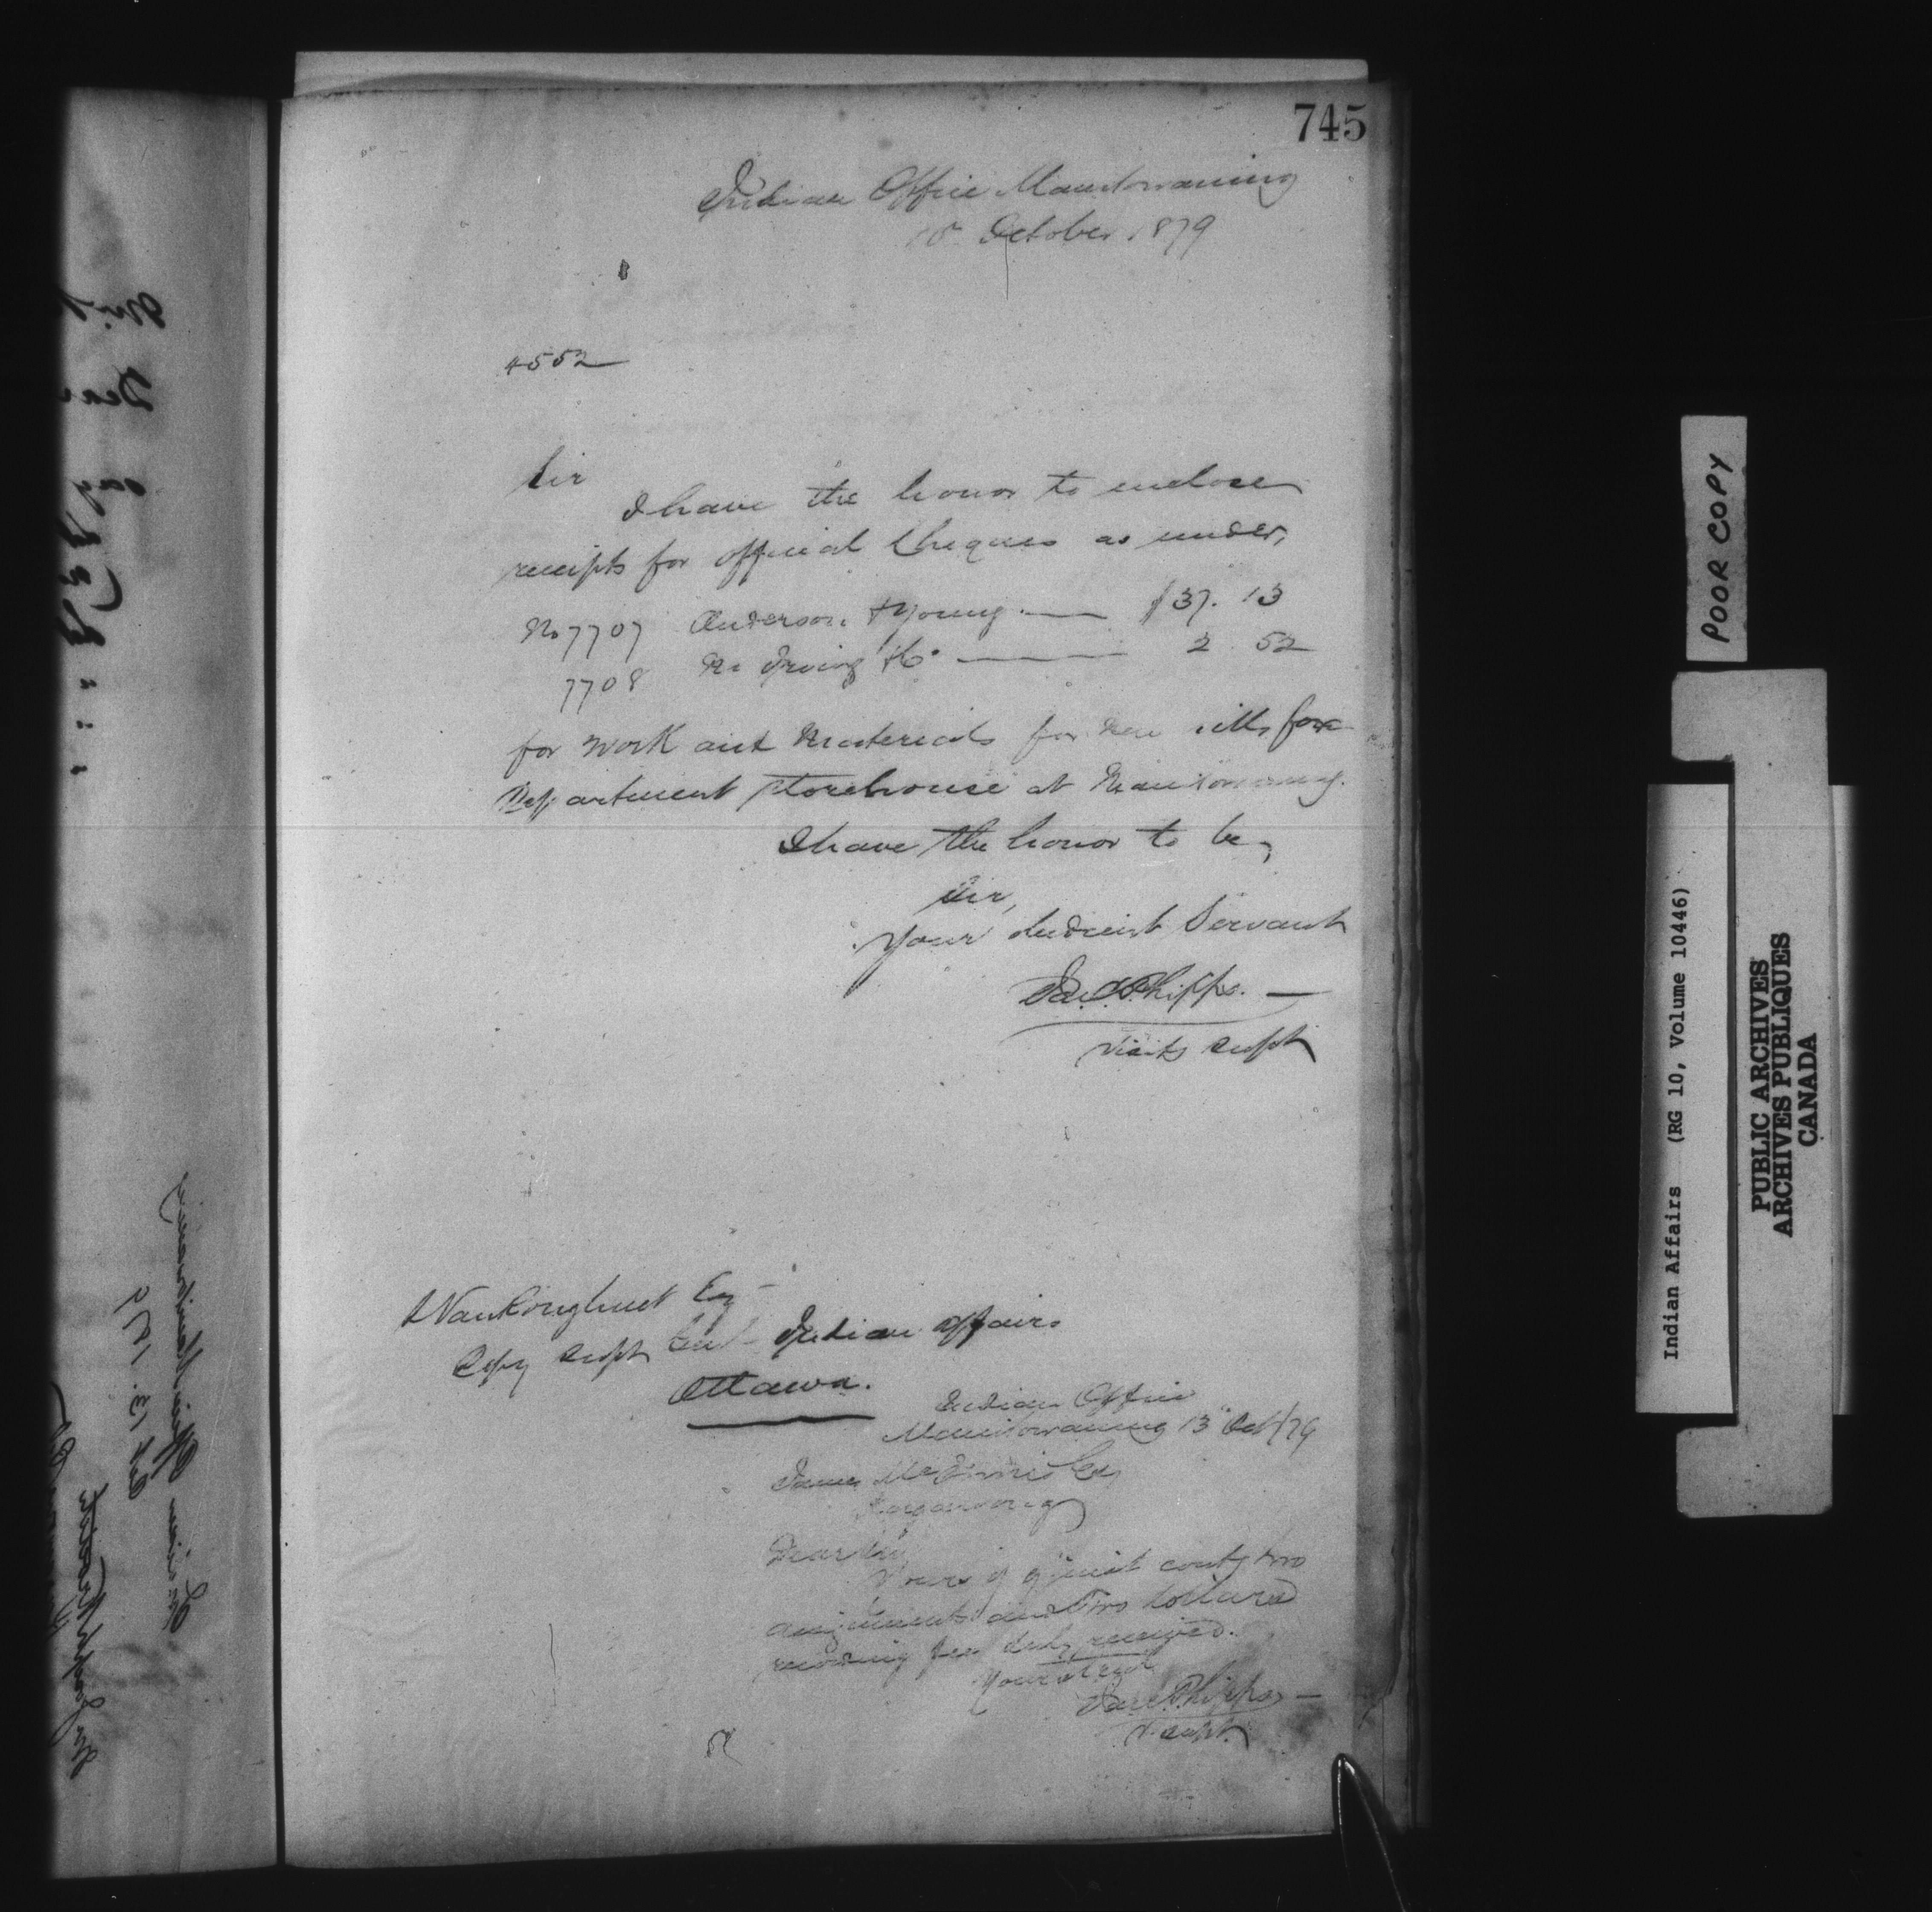 745
Indian Office Manitowaning
October 1879
4552
Sir
I have the honor to enclose
receipts for official Cheques as under,
No 7707 Anderson & Young — $37. 13
7708 Irving & Co — 2 52
for work and Materials for new sills for
Department Storehouse at Manitowaning.
I have the honor to be,
Sir,
Your obedient Servant
Jas. C. Phipps. —
Visitg Supt
L Vankoughnet Esq
Depy Supt Genl Indian Affairs
Ottawa.
Indian Office
Manitowaning 13th Oct/79
James Esq
Dear Sir
Yours of 9th inst contg two
assignments and Two dollars
recording fees duly received.
Yours truly
Jas. C. Phipps —
V. Supt.
POOR COPY
Indian Affairs (RG 10, Volume 10446)
PUBLIC ARCHIVES
ARCHIVES PUBLIQUES
CANADA